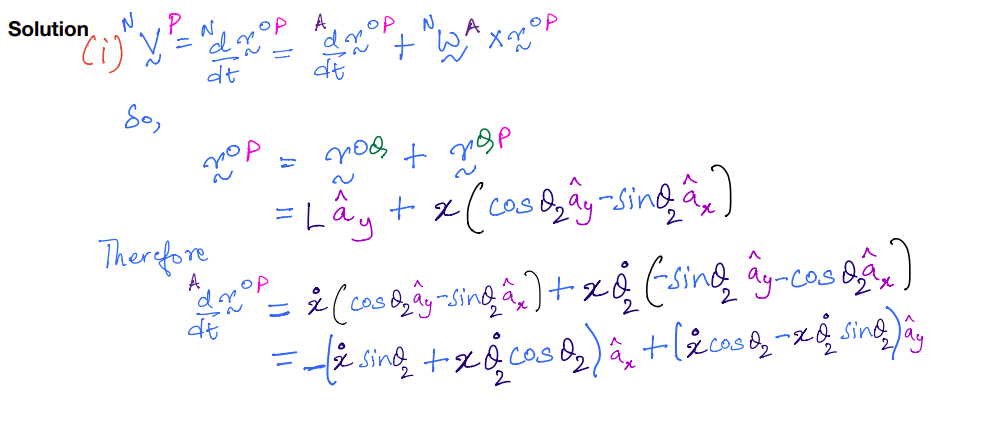 Solution
(i) ᴺV̰ᴾ = ᴺd/dt r̰ᴼᴾ = ᴬd/dt r̰ᴼᴾ + ᴺω̰ᴬ × r̰ᴼᴾ
So,
r̰ᴼᴾ = r̰ᴼQ + r̰Qᴾ
= L â_y + x(cos θ₂ â_y - sin θ₂ â_x)
Therefore
ᴬd/dt r̰ᴼᴾ = ẋ(cos θ₂ â_y - sin θ₂ â_x) + x θ̇₂(-sin θ₂ â_y - cos θ₂ â_x)
= -(ẋ sin θ₂ + x θ̇₂ cos θ₂) â_x + (ẋ cos θ₂ - x θ̇₂ sin θ₂) â_y